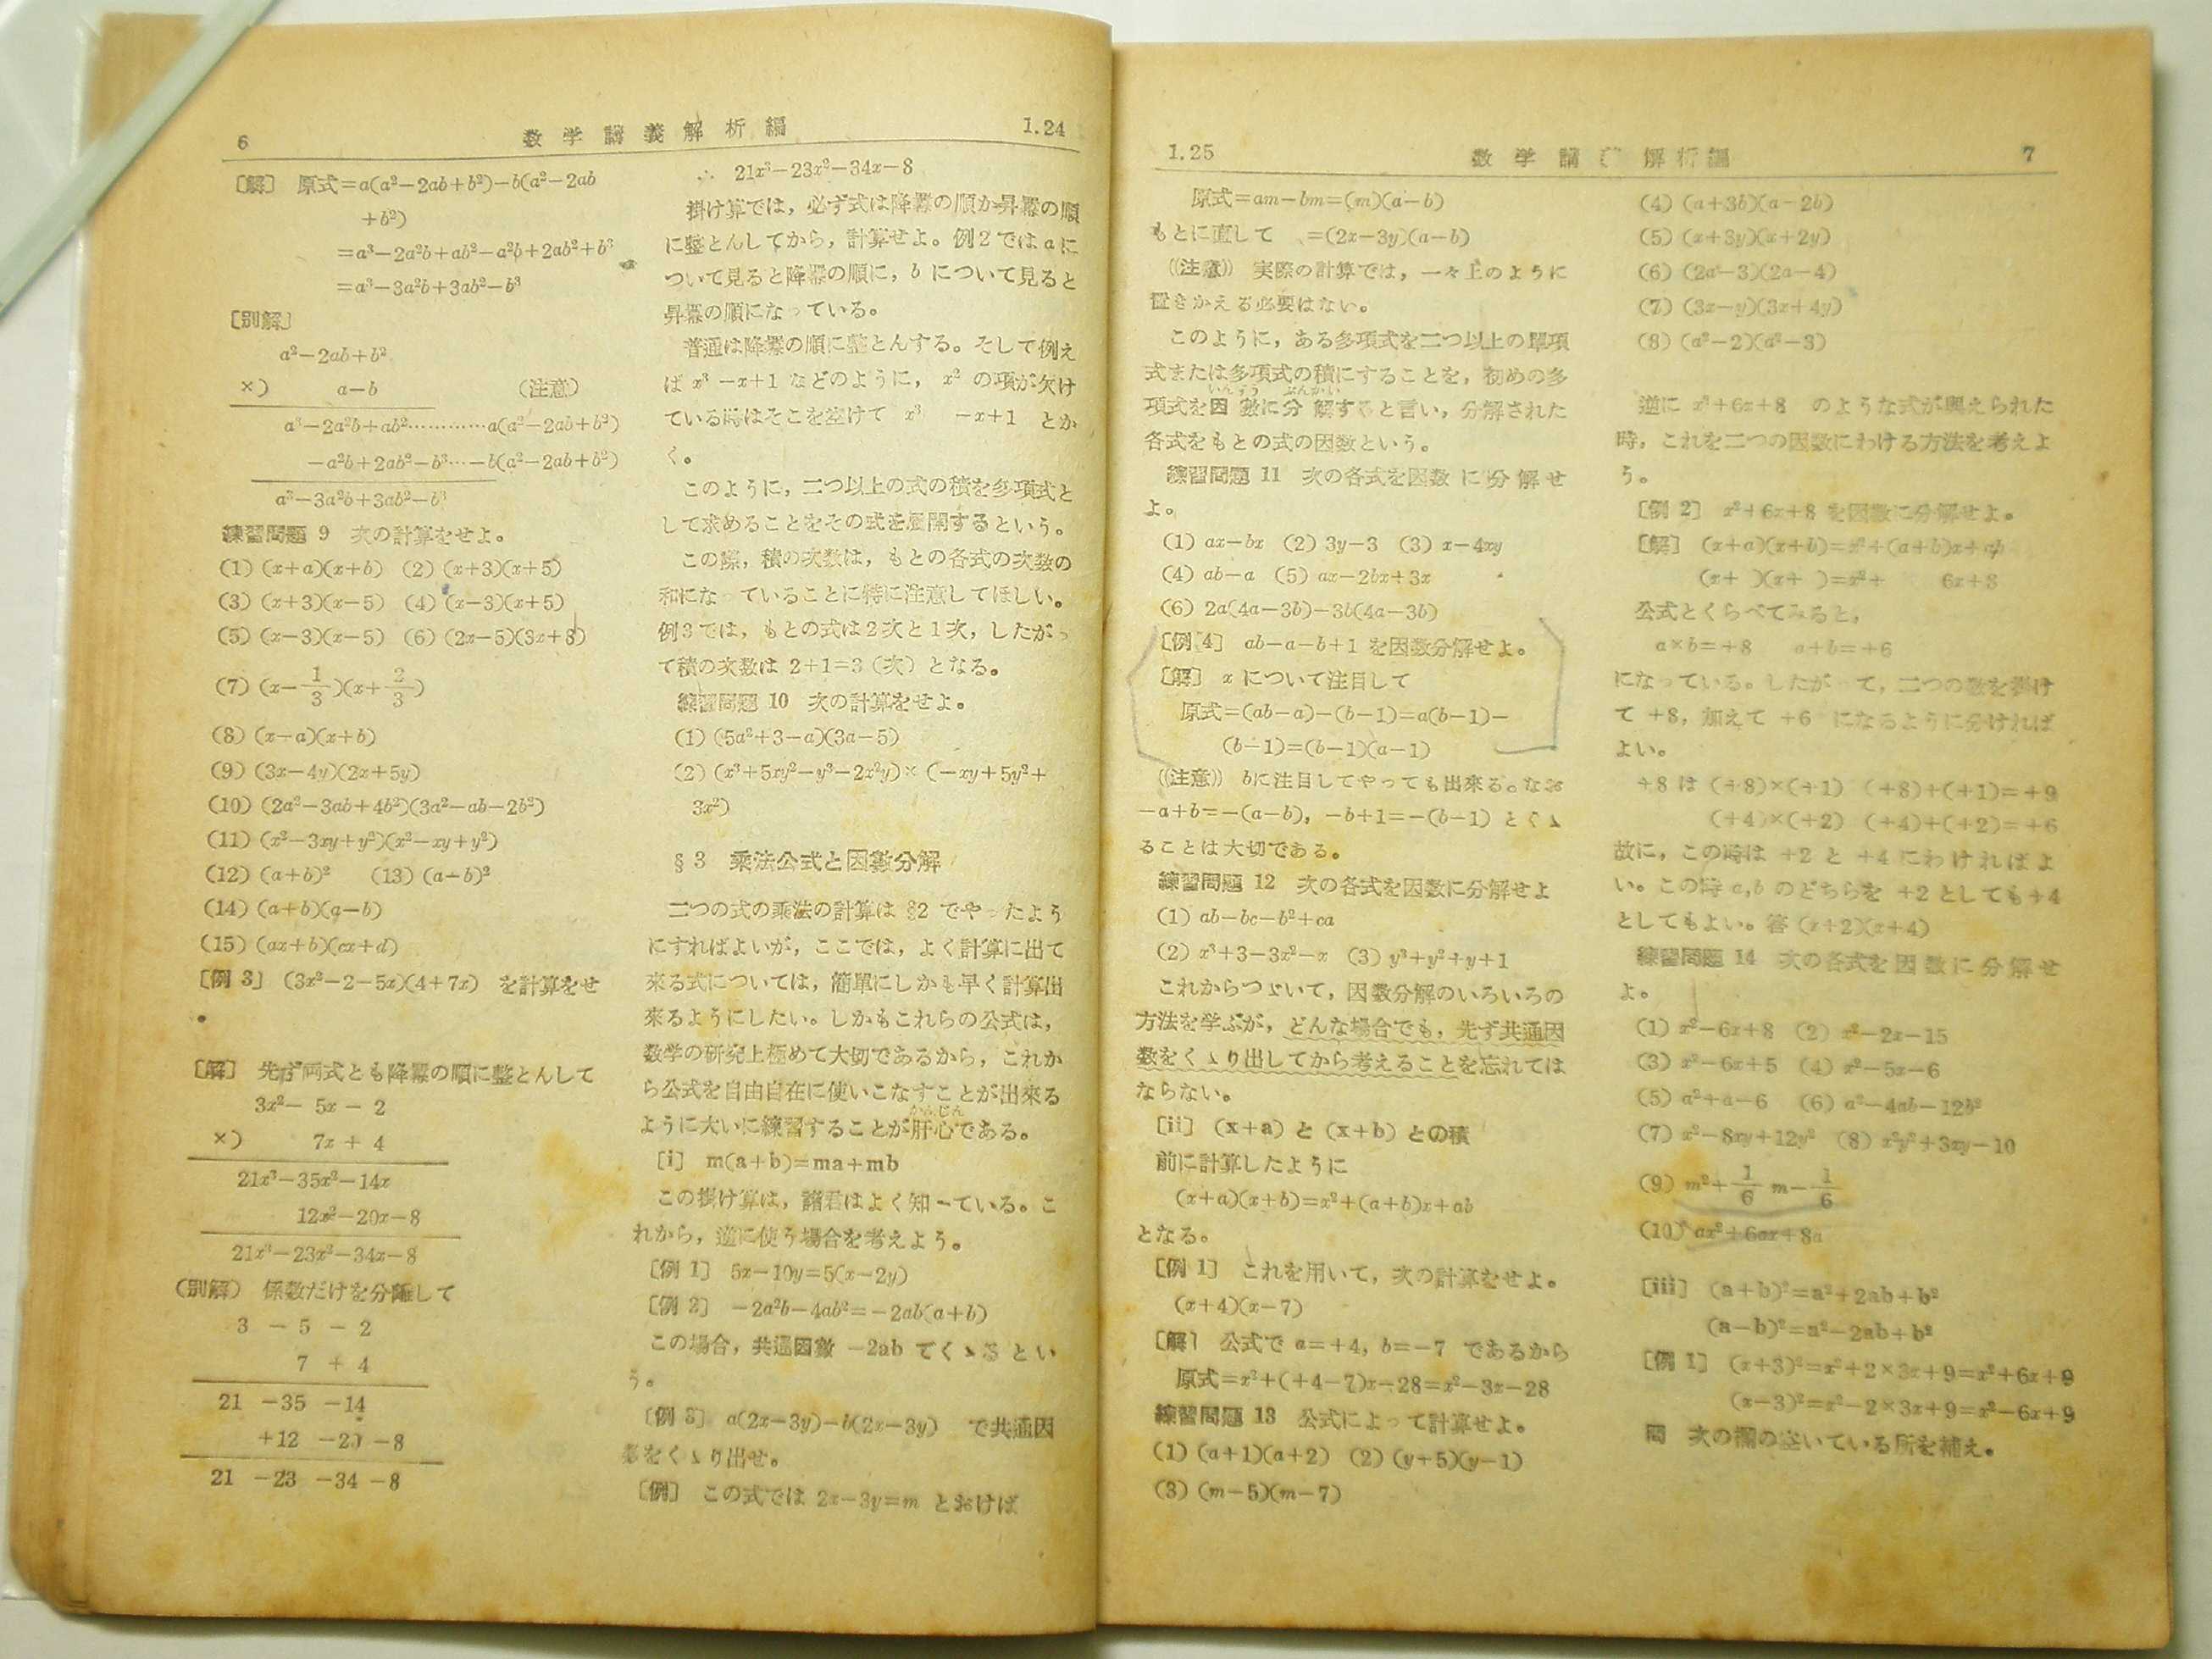 6 数学講義解析編 1.24
〔解〕 原式=a(a²−2ab+b²)−b(a²−2ab
+b²)
=a³−2a²b+ab²−a²b+2ab²+b³
=a³−3a²b+3ab²−b³
〔別解〕
a²−2ab+b²
×) a−b (注意)
a³−2a²b+ab²…………a(a²−2ab+b²)
−a²b+2ab²−b³…−b(a²−2ab+b²)
a³−3a²b+3ab²−b³
練習問題 9 次の計算をせよ。
(1) (x+a)(x+b) (2) (x+3)(x+5)
(3) (x+3)(x−5) (4) (x−3)(x+5)
(5) (x−3)(x−5) (6) (2x−5)(3x+8)
(7) (x−1/3)(x+2/3)
(8) (x−a)(x+b)
(9) (3x−4y)(2x+5y)
(10) (2a²−3ab+4b²)(3a²−ab−2b²)
(11) (x²−3xy+y²)(x²−xy+y²)
(12) (a+b)² (13) (a−b)²
(14) (a+b)(a−b)
(15) (ax+b)(cx+d)
〔例 3〕 (3x²−2−5x)(4+7x) を計算をせ
。
〔解〕 先ず両式とも降羃の順に整とんして
3x²− 5x − 2
×) 7x + 4
21x³−35x²−14x
12x²−20x−8
21x³−23x²−34x−8
(別解) 係数だけを分離して
3 − 5 − 2
7 + 4
21 −35 −14
+12 −20 −8
21 −23 −34 −8
∴ 21x³−23x²−34x−8
掛け算では，必ず式は降羃の順か昇羃の順
に整とんしてから，計算せよ。例2では a に
ついて見ると降羃の順に，b について見ると
昇羃の順になっている。
普通は降羃の順に整とんする。そして例え
ば x³ −x+1 などのように， x² の項が欠け
ている時はそこを空けて x³ −x+1 とか
く。
このように，二つ以上の式の積を多項式と
して求めることをその式を展開するという。
この際，積の次数は，もとの各式の次数の
和になっていることに特に注意してほしい。
例3では，もとの式は2次と1次，したがっ
て積の次数は 2+1=3（次）となる。
練習問題 10 次の計算をせよ。
(1) (5a²+3−a)(3a−5)
(2) (x³+5xy²−y³−2x²y)×(−xy+5y²+
3x²)
§3 乗法公式と因数分解
二つの式の乗法の計算は §2 でやったよう
にすればよいが，ここでは，よく計算に出て
来る式については，簡単にしかも早く計算出
来るようにしたい。しかもこれらの公式は，
数学の研究上極めて大切であるから，これか
ら公式を自由自在に使いこなすことが出来る
かんじん
ように大いに練習することが肝心である。
〔i〕 m(a+b)=ma+mb
この掛け算は，諸君はよく知っている。こ
れから，逆に使う場合を考えよう。
〔例 1〕 5x−10y=5(x−2y)
〔例 2〕 −2a²b−4ab²=−2ab(a+b)
この場合，共通因数 −2ab でくゝるとい
う。
〔例 3〕 a(2x−3y)−b(2x−3y) で共通因
数をくゝり出せ。
〔例〕 この式では 2x−3y=m とおけば
1.25 数学講 解析編 7
原式=am−bm=(m)(a−b)
もとに直して =(2x−3y)(a−b)
((注意)) 実際の計算では，一々上のように
置きかえる必要はない。
このように，ある多項式を二つ以上の単項
式または多項式の積にすることを，初めの多
いんすう ぶんかい
項式を因数に分解すると言い，分解された
各式をもとの式の因数という。
練習問題 11 次の各式を因数に分解せ
よ。
(1) ax−bx (2) 3y−3 (3) x−4xy
(4) ab−a (5) ax−2bx+3x
(6) 2a(4a−3b)−3b(4a−3b)
〔例 4〕 ab−a−b+1 を因数分解せよ。
〔解〕 x について注目して
原式=(ab−a)−(b−1)=a(b−1)−
(b−1)=(b−1)(a−1)
((注意)) bに注目してやっても出来る。なお
−a+b=−(a−b)，−b+1=−(b−1) とくゝ
ることは大切である。
練習問題 12 次の各式を因数に分解せよ
(1) ab−bc−b²+ca
(2) x³+3−3x²−x (3) y³+y²+y+1
これからつゞいて，因数分解のいろいろの
方法を学ぶが，どんな場合でも，先ず共通因
数をくゝり出してから考えることを忘れては
ならない。
〔ii〕 (x+a) と (x+b) との積
前に計算したように
(x+a)(x+b)=x²+(a+b)x+ab
となる。
〔例 1〕 これを用いて，次の計算をせよ。
(x+4)(x−7)
〔解〕 公式で a=+4, b=−7 であるから
原式=x²+(+4−7)x−28=x²−3x−28
練習問題 13 公式によって計算せよ。
(1) (a+1)(a+2) (2) (y+5)(y−1)
(3) (m−5)(m−7)
(4) (a+3b)(a−2b)
(5) (x+3y)(x+2y)
(6) (2a−3)(2a−4)
(7) (3x−y)(3x+4y)
(8) (a²−2)(a²−3)
逆に x²+6x+8 のような式が與えられた
時，これを二つの因数にわける方法を考えよ
う。
〔例 2〕 x²+6x+8 を因数に分解せよ。
〔解〕 (x+a)(x+b)=x²+(a+b)x+ab
(x+ )(x+ )=x²+ 6x+8
公式とくらべてみると，
a×b=+8 a+b=+6
になっている。したがって，二つの数を掛け
て +8，加えて +6 になるように分ければ
よい。
+8 は (+8)×(+1) (+8)+(+1)=+9
(+4)×(+2) (+4)+(+2)=+6
故に，この時は +2 と +4 にわければよ
い。この時 a,b のどちらを +2 としても+4
としてもよい。答 (x+2)(x+4)
練習問題 14 次の各式を因数に分解せ
よ。
(1) x²−6x+8 (2) x²−2x−15
(3) x²−6x+5 (4) x²−5x−6
(5) a²+a−6 (6) a²−4ab−12b²
(7) x²−8xy+12y² (8) x²y²+3xy−10
(9) m²+1/6 m−1/6
(10) ax²+6ax+8a
〔iii〕 (a+b)²=a²+2ab+b²
(a−b)²=a²−2ab+b²
〔例 1〕 (x+3)²=x²+2×3x+9=x²+6x+9
(x−3)²=x²−2×3x+9=x²−6x+9
問 次の欄の空いている所を補え。